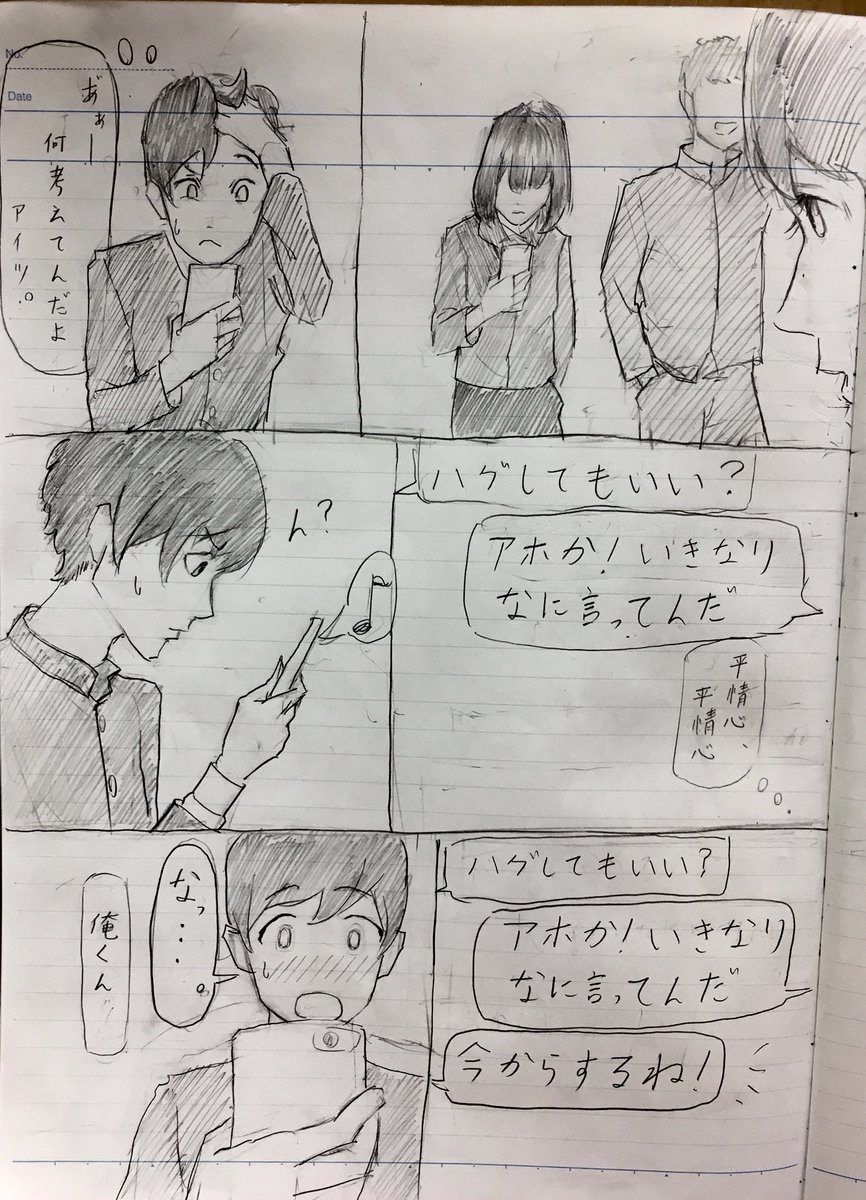 No.
Date
あ゛ぁー
何考えてんだよ
アイツ。
ハグしてもいい?
アホか!いきなり
なに言ってんだ
平情心、
平情心
ん?
ハグしてもいい?
アホか!いきなり
なに言ってんだ
今からするね!
なっ・・・。
俺くん